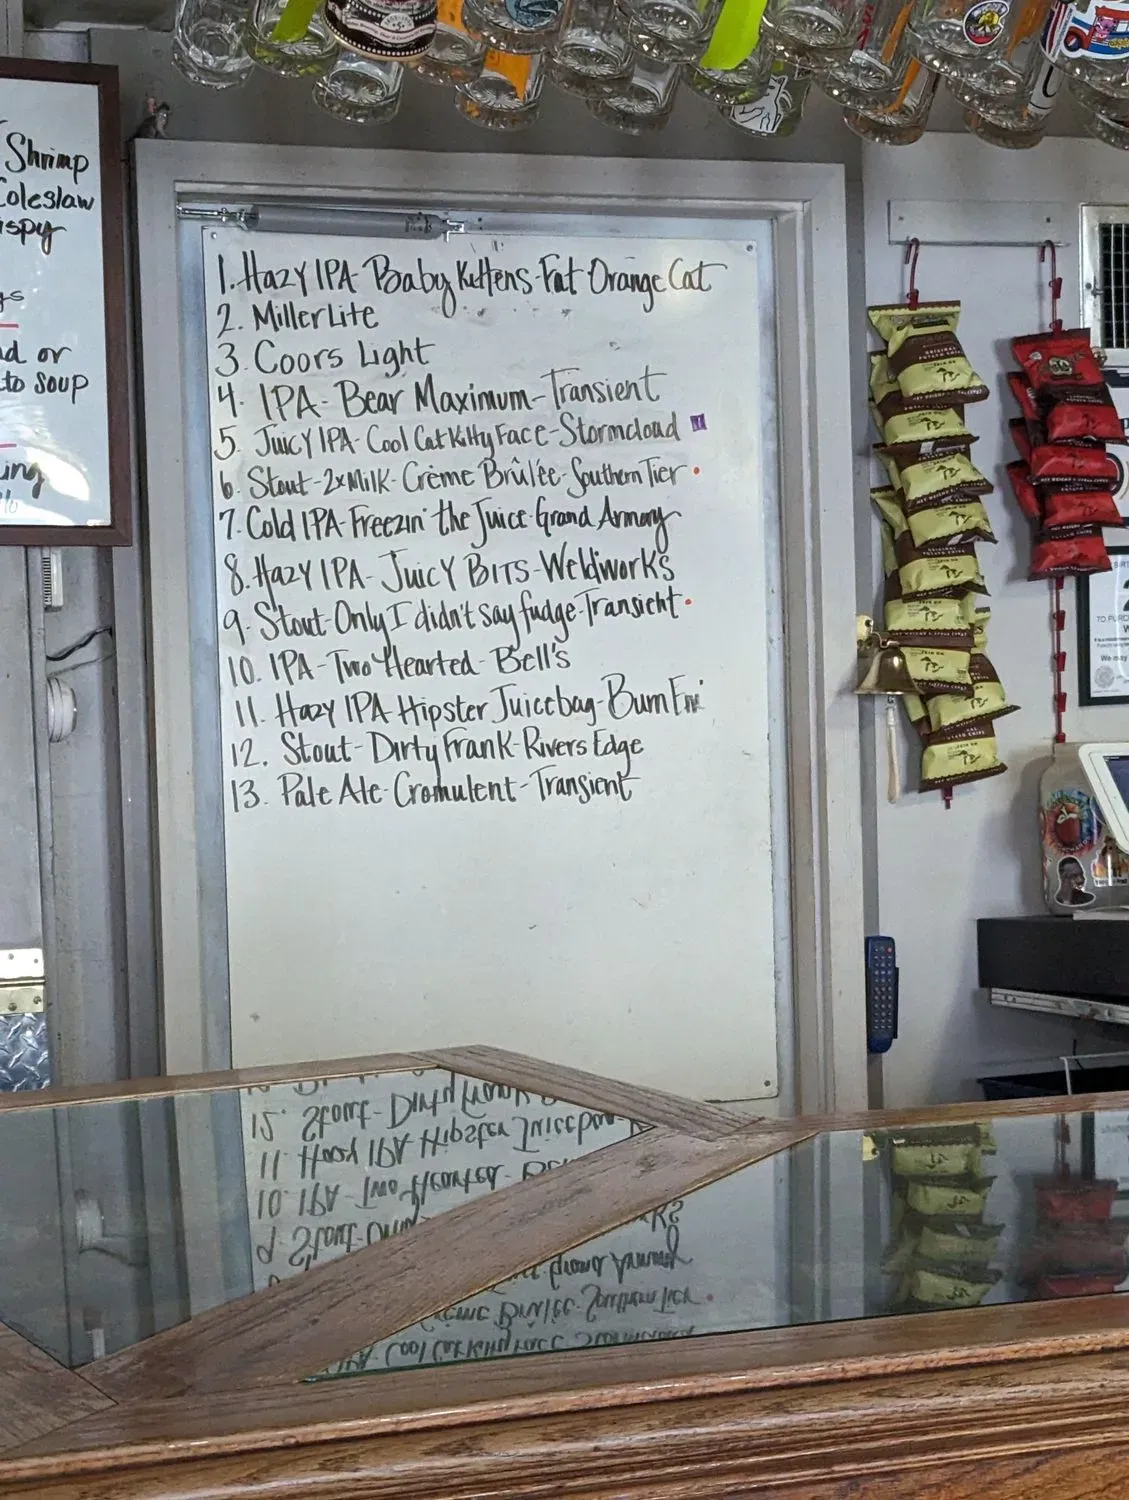 Shrimp
Coleslaw
ispy
gs
d or
to soup
ing
1. Hazy IPA- Baby Kittens-Fat Orange Cat
2. Miller Lite
3. Coors Light
4. IPA- Bear Maximum-Transient
5. Juicy IPA-Cool Cat Kitty Face-Stormcloud
6. Stout-2xMilk-Crème Brûlée-Southern Tier
7. Cold IPA-Freezin' the Juice-Grand Armory
8. Hazy IPA-Juicy Bits-Weldwerks
9. Stout-Only I didn't say fudge-Transient
10. IPA-Two Hearted-Bell's
11. Hazy IPA Hipster Juicebag-Burn Em'
12. Stout-Dirty Frank-Rivers Edge
13. Pale Ale-Cromulent-Transient
TO PUR
We may